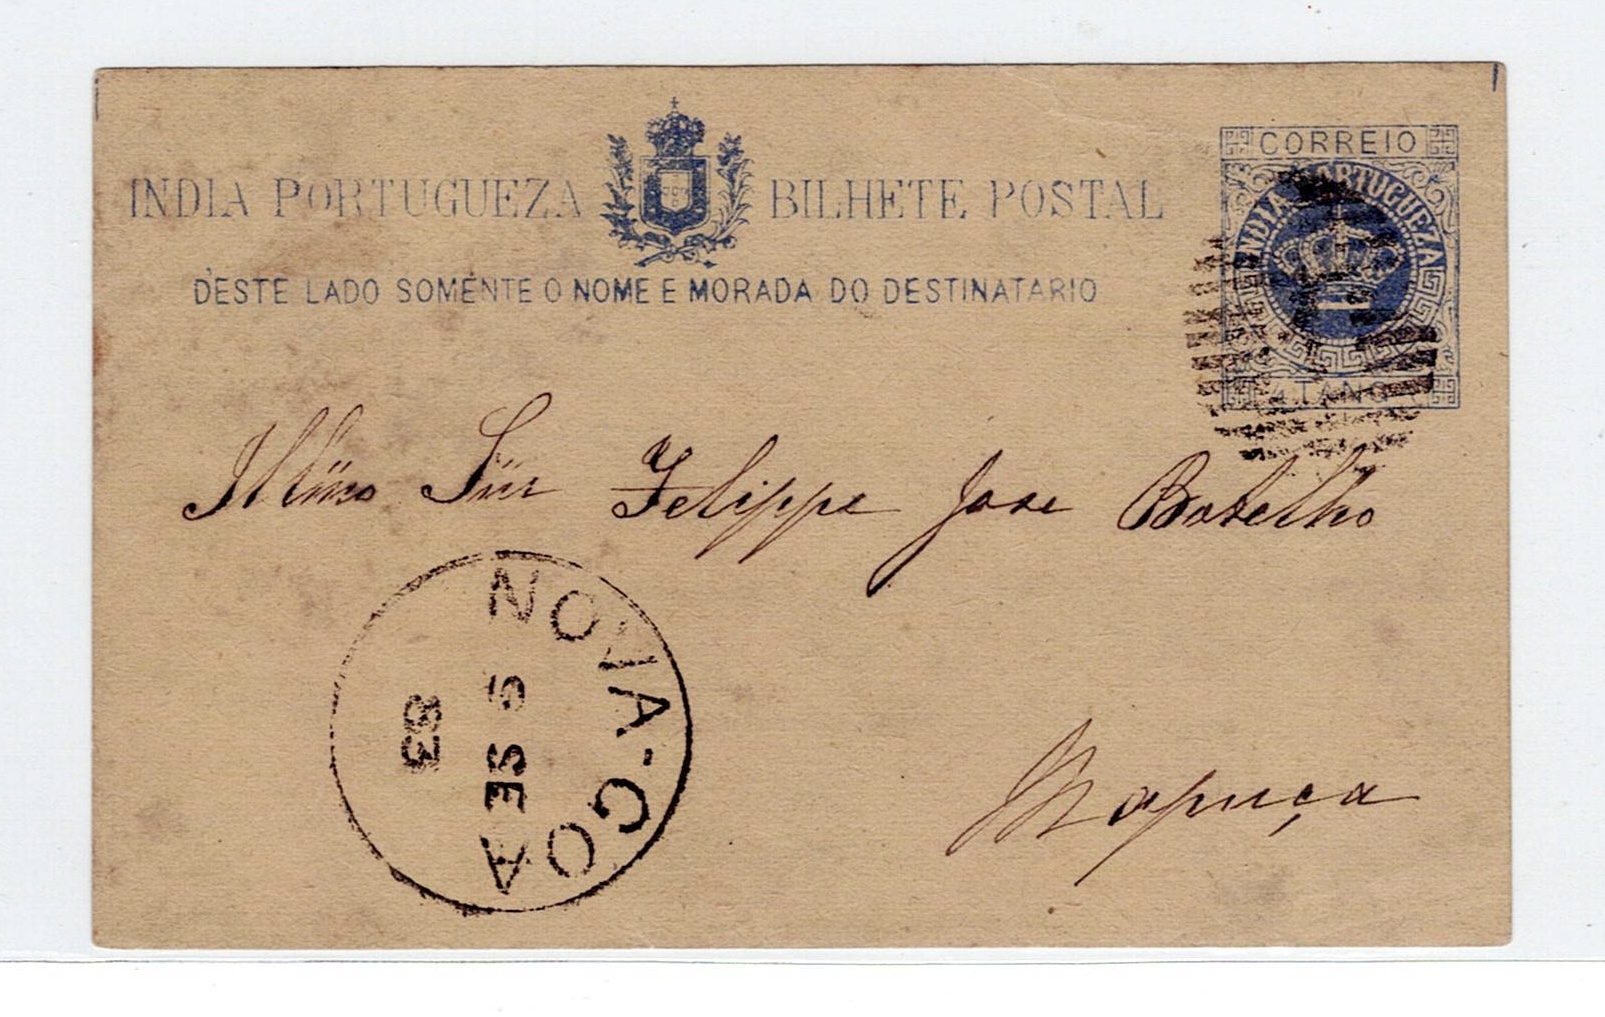 INDIA PORTUGUEZA BILHETE POSTAL
DESTE LADO SOMENTE O NOME E MORADA DO DESTINATARIO
CORREIO
INDIA PORTUGUEZA
¼ TANGA
Illmo Snr Felippe Jose Botelho
Mapuça
NOVA-GOA
5 SE
83